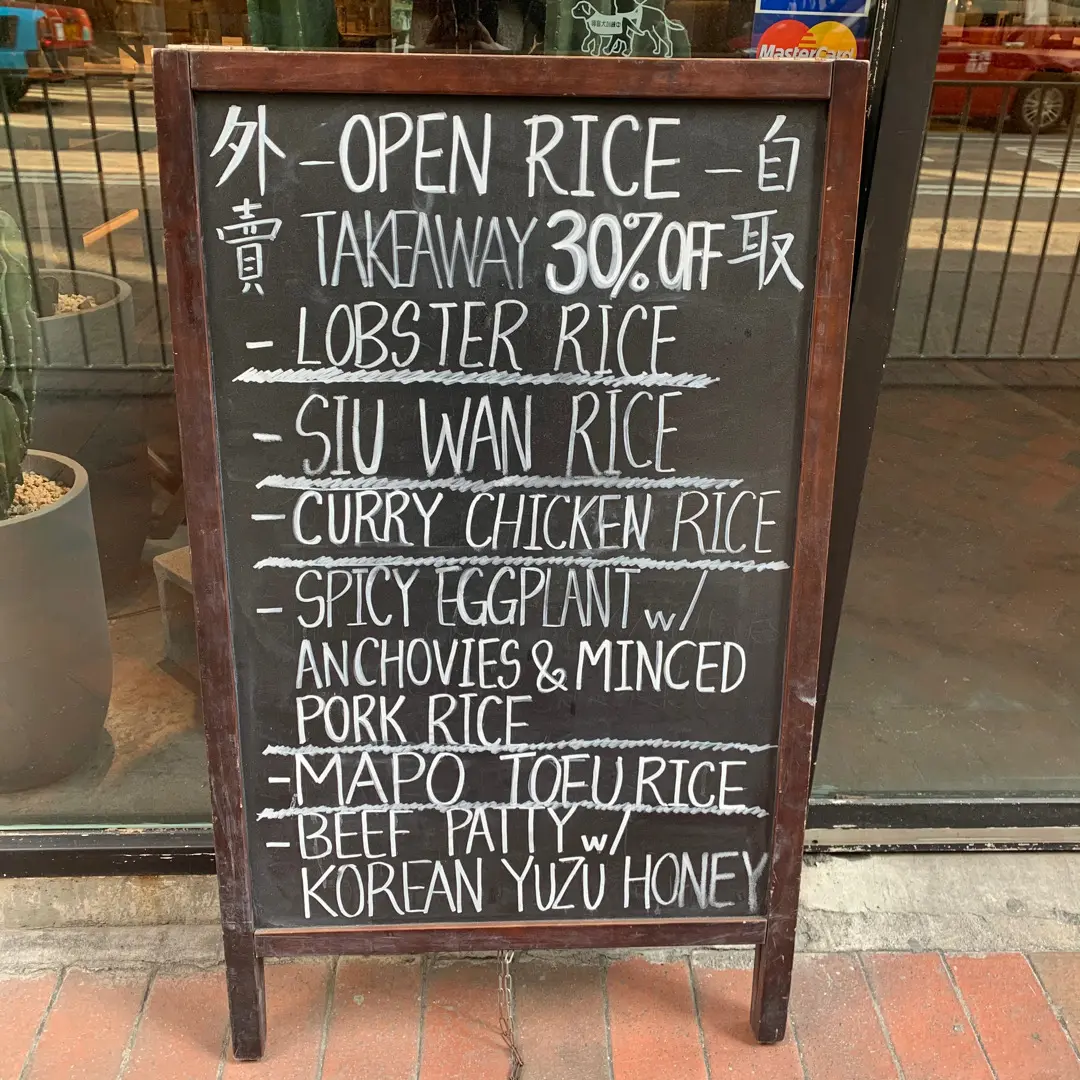 外 -OPEN RICE- 自
賣 TAKEAWAY 30% OFF 取
- LOBSTER RICE
- SIU WAN RICE
- CURRY CHICKEN RICE
- SPICY EGGPLANT w/
ANCHOVIES & MINCED
PORK RICE
- MAPO TOFU RICE
- BEEF PATTY w/
KOREAN YUZU HONEY
MasterCard